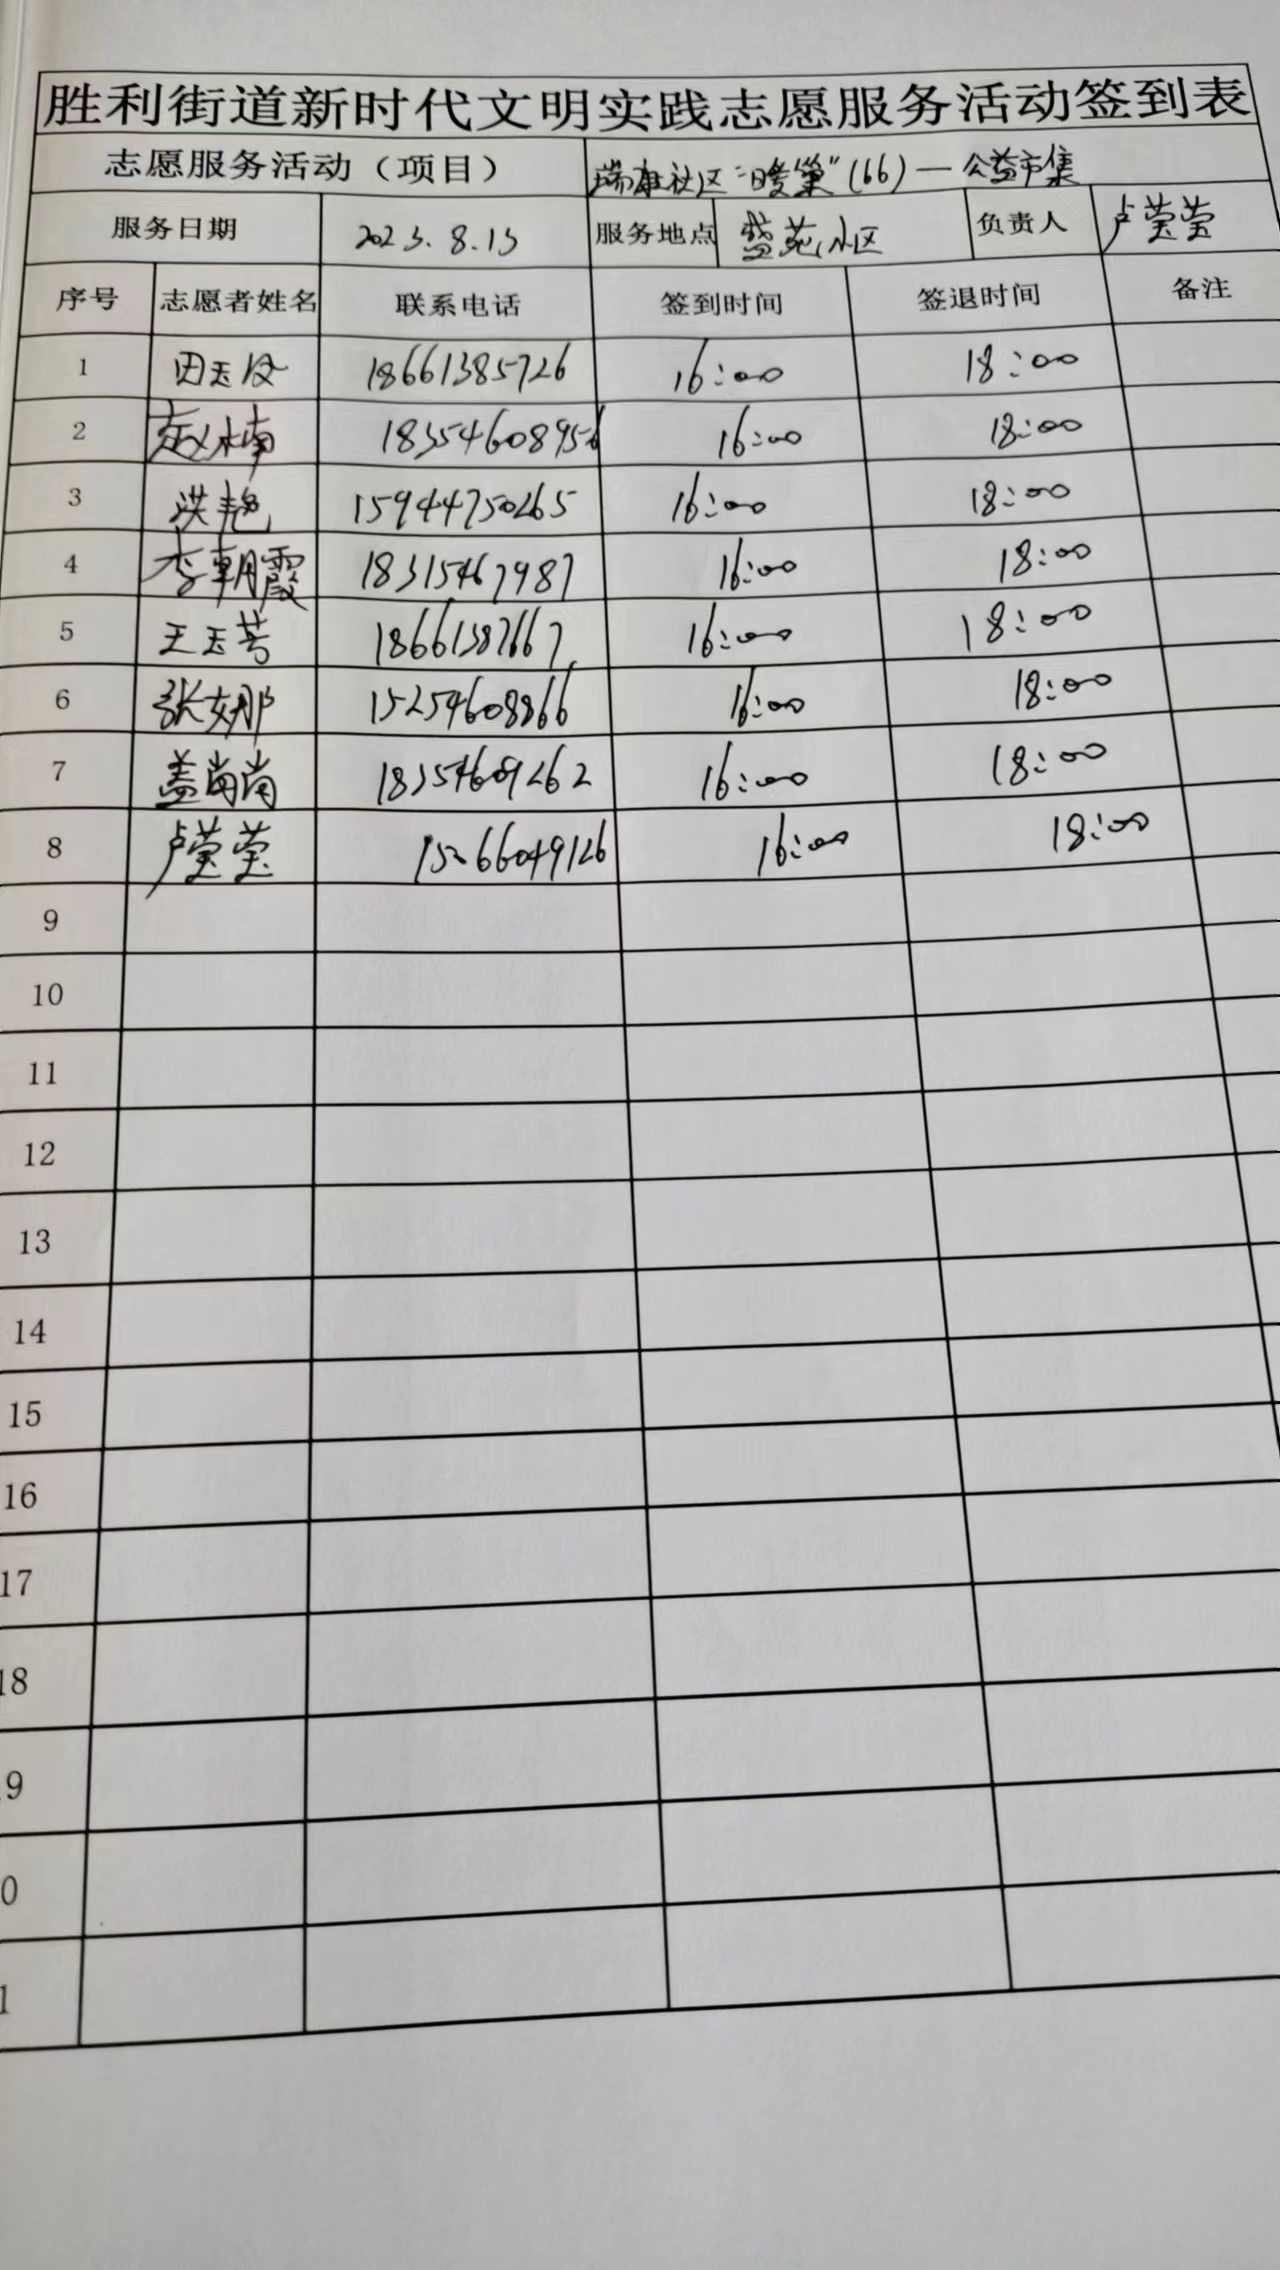 胜利街道新时代文明实践志愿服务活动签到表
志愿服务活动（项目） 瑞康社区“暖巢”(66)—公益市集
服务日期 2023.8.15 服务地点 盛苑小区 负责人 卢莹莹
序号 志愿者姓名 联系电话 签到时间 签退时间 备注
1 田玉 18661385726 16:00 18:00
2 赵楠 18354608956 16:00 18:00
3 洪艳 15944750265 16:00 18:00
4 李朝霞 18315467987 16:00 18:00
5 王玉芳 18661387667 16:00 18:00
6 张娜 15254608866 16:00 18:00
7 盖尚尚 18354609262 16:00 18:00
8 卢莹莹 15266049126 16:00 18:00
9
10
11
12
13
14
15
16
17
18
9
0
1